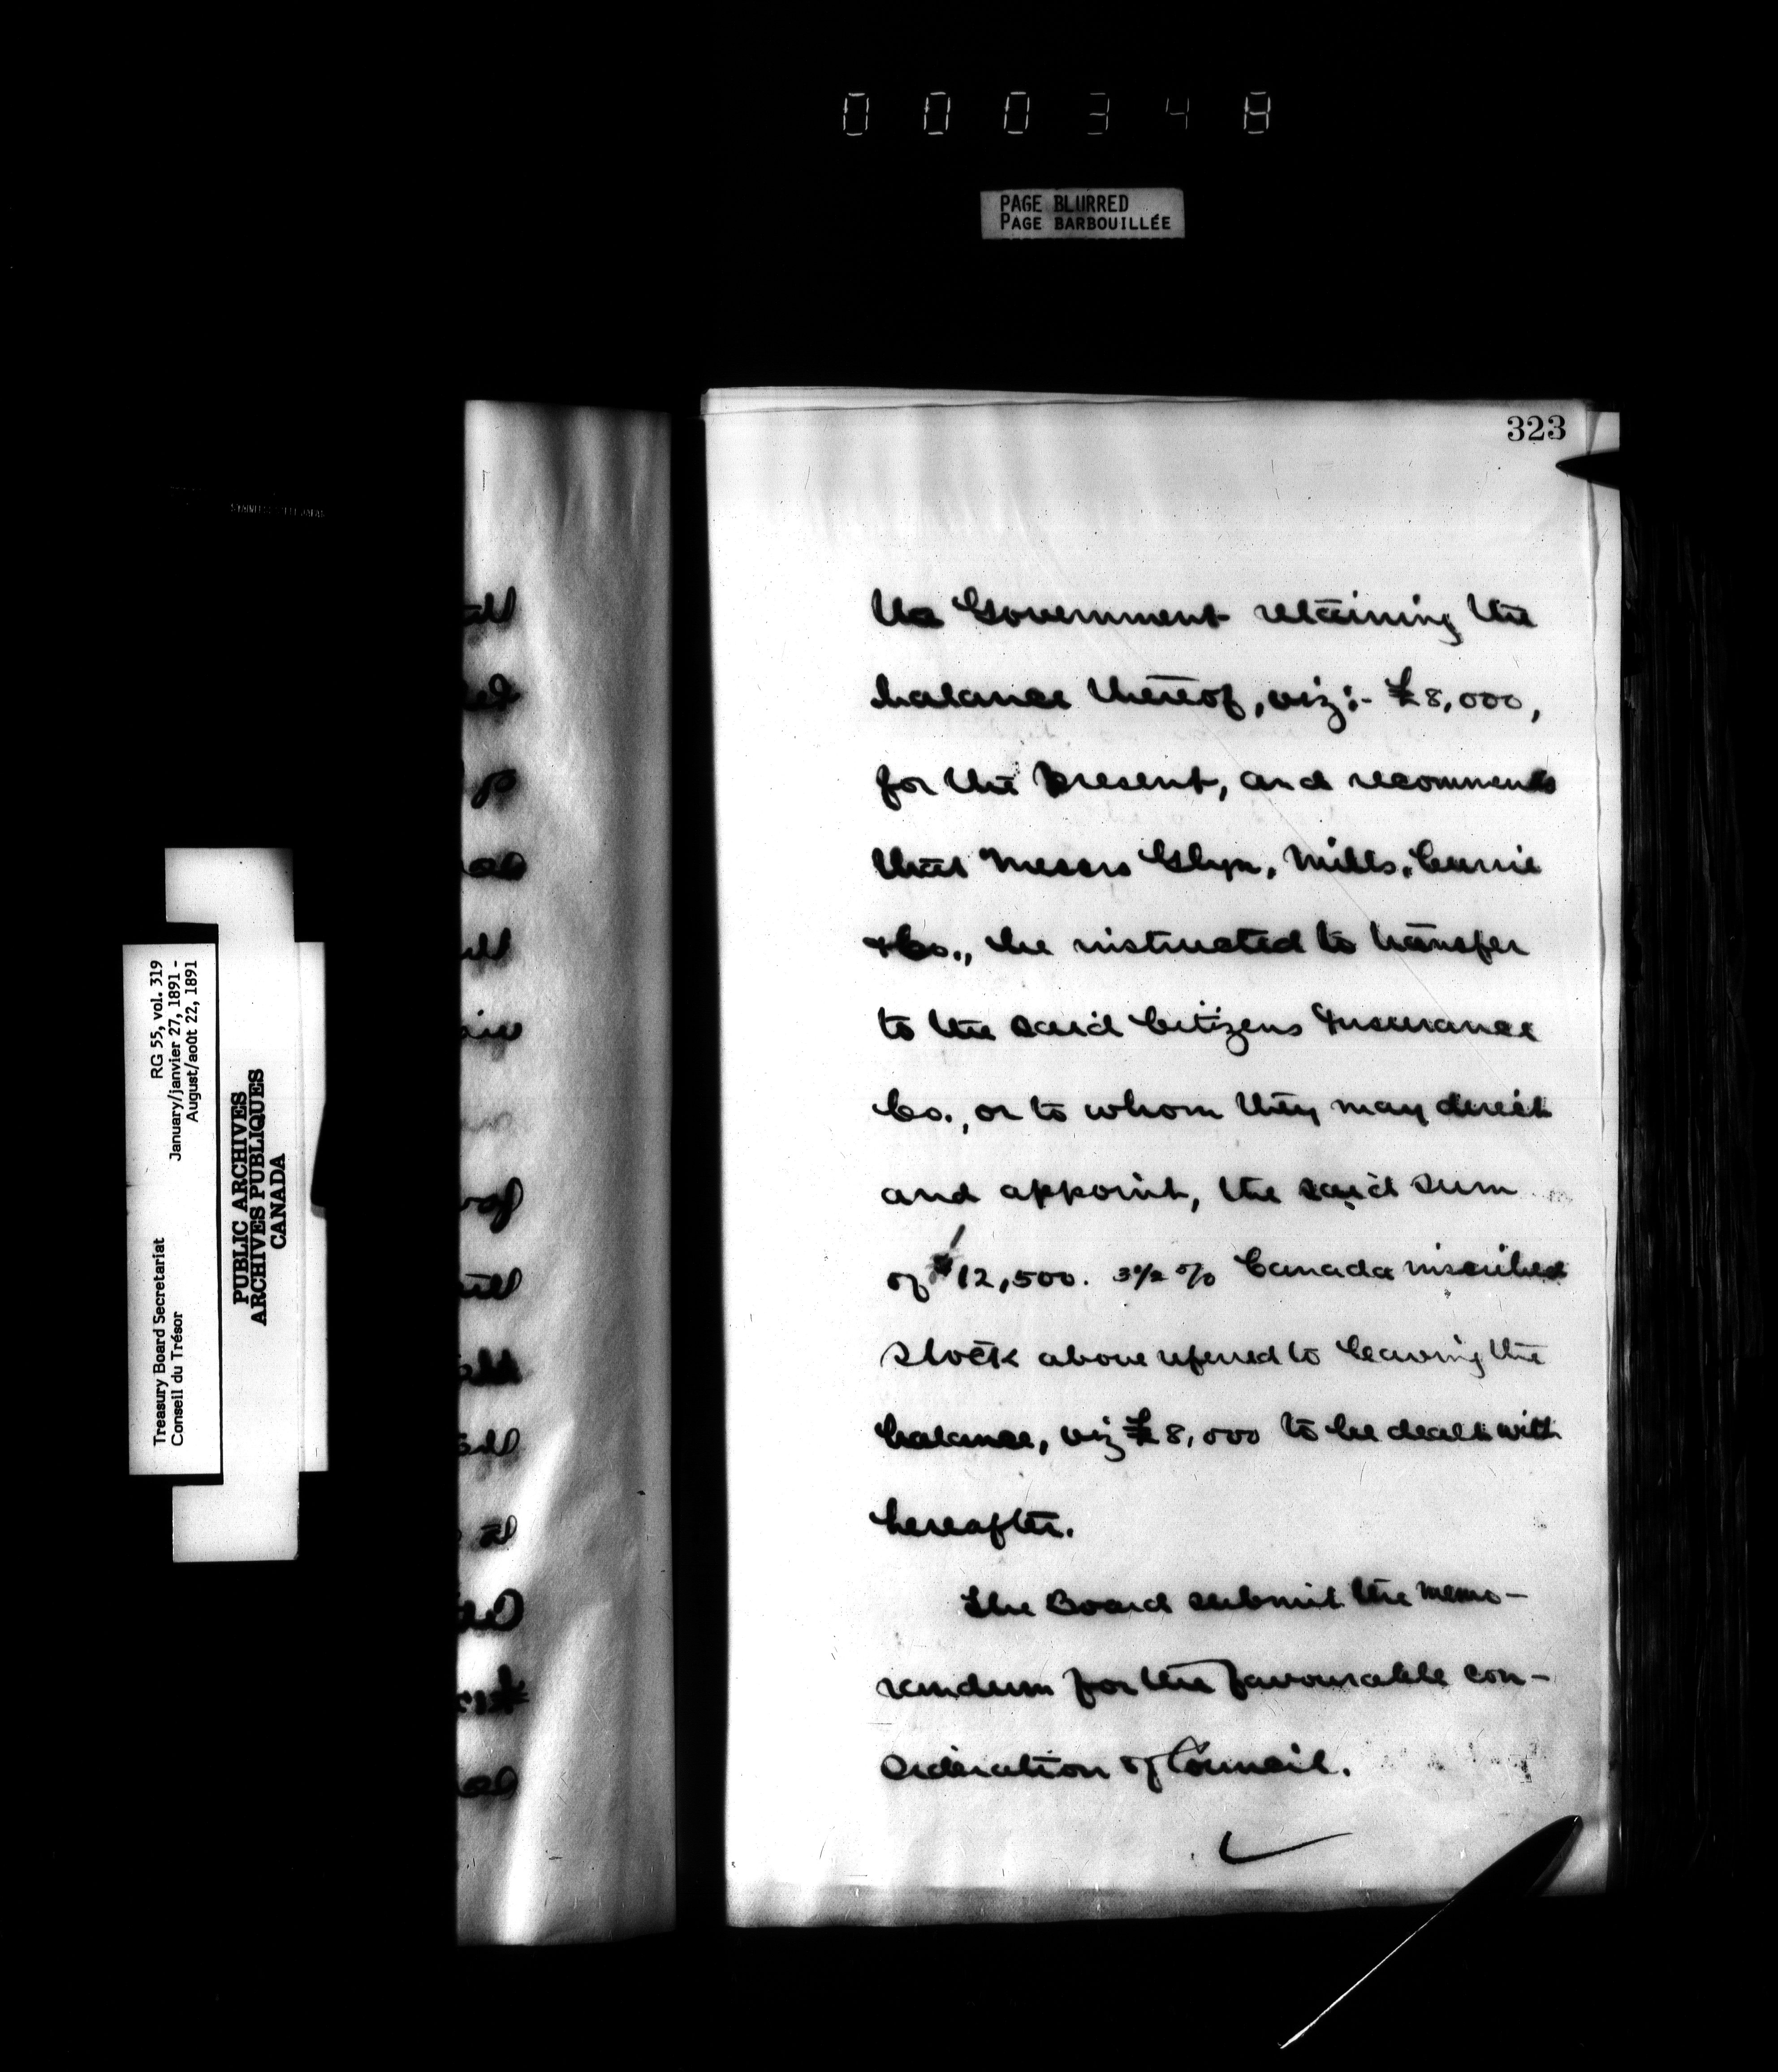 000348
PAGE BLURRED
PAGE BARBOUILLÉE
323
the Government retaining the
balance thereof, viz:- £8,000,
for the present, and recommends
that Messrs Glyn, Mills, Currie
& Co., be instructed to transfer
to the said Citizens Insurance
Co., or to whom they may direct
and appoint, the said sum
of 12,500. 3½ % Canada inscribed
Stock above referred to leaving the
balance, viz £8,000 to be dealt with
hereafter.
The Board submit the memo-
randum for the favourable con-
sideration of Council.
Treasury Board Secretariat RG 55, vol. 319
Conseil du Trésor January/janvier 27, 1891 -
August/août 22, 1891
PUBLIC ARCHIVES
ARCHIVES PUBLIQUES
CANADA